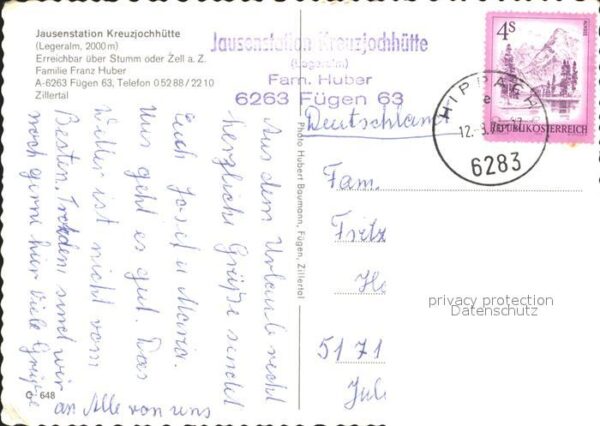 Jausenstation Kreuzjochhütte
(Legeralm, 2000 m)
Erreichbar über Stumm oder Zell a. Z.
Familie Franz Huber
A-6263 Fügen 63, Telefon 0 52 88 / 22 10
Zillertal
Jausenstation Kreuzjochhütte
(Legeralm)
Fam. Huber
6263 Fügen 63
Aus dem Urlaub recht
herzliche Grüße sendet
Euch Josef u Maria.
Uns geht es gut. Das
Wetter ist nicht vom
Besten. Trotzdem sind wir
noch gerne hier Viele Grüße
an Alle von uns
C 648
Photo Hubert Baumann, Fügen, Zillertal
4S
REPUBLIK ÖSTERREICH
HIPPACH
12.-3.
-17
6283
Deutschland
Fam.
Fritz
He
5171
Jül
privacy protection
Datenschutz